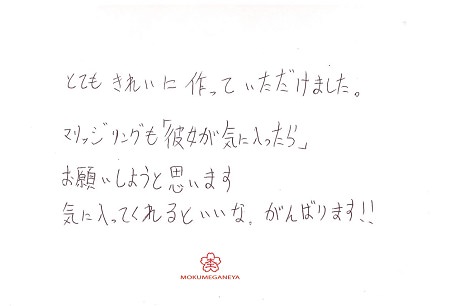 とても きれいに 作って いただけました。
マリッジリングも「彼女が気に入ったら」
お願いしようと思います
気に入ってくれるといいな。がんばります!!
杢
MOKUMEGANEYA